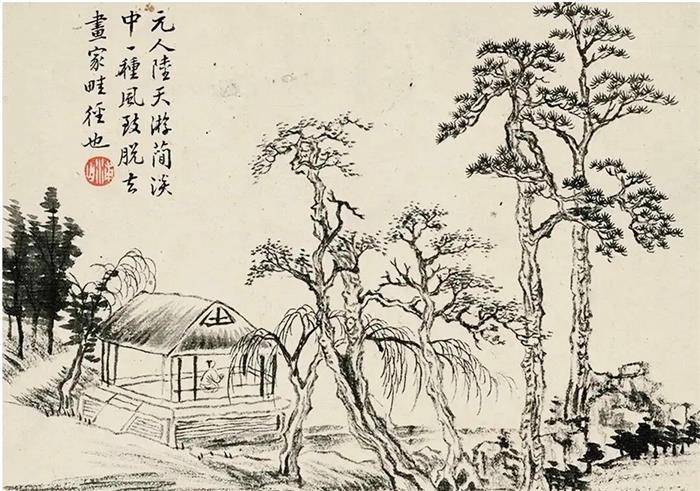 元人陸天游簡淡
中一種風致脫去
畫家畦徑也